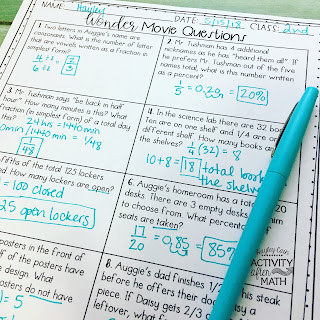 NAME: Hayley DATE: 5/15/18 CLASS: 2nd
Wonder Movie Questions
1. Two letters in Auggie's name are
consonants. What is the number of letter
that are vowels written as a fraction in
simplest form?
4 ÷2 = 2
6 ÷2 3
2. Mr Tushman has 4 additional
nicknames as he has "heard them all". If
he prefers Mr. Tushman out of the five
names total, what is this number written
as a percent?
1/5 = 0.20 = 20%
3. Mr Tushman says "be back in half
hour". How many minutes is this? What
fraction (in simplest form) of a total day
this?
24 hrs = 1440 min
0min/1440min = 1/48
1/48
4. In the science lab there are 32 book
Ten are on one shelf and 1/4 are o
different shelf. How many books a
the shelves?
1/4 (32) = 8
10+8 = 18 total book
the shelve
fifths of the total 125 lockers
How many lockers are open?
= 100 closed
25 open lockers
6. Auggie's homeroom has a tota
desks. There are 3 empty desks
to choose from. What percent of
seats are taken?
17/20 = 0.85 = 85%
posters in the front of
of the posters have
me design. What
posters do not have
) = 5
8. Auggie's dad finishes 1/2 his steak
before he offers their do
piece. If Daisy gets 2/3 o
leftover, what f
Hayley Cain
ACTIVITY
after
MATH